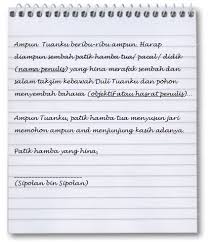 Ampun Tuanku beribu-ribu ampun. Harap
diampun sembah patik hamba tua/ pacal/ didik
(nama penulis) yang hina merafak sembah dan
salam takzim kebawah Duli Tuanku dan pohon
menyembah bahasa (objektif atau hasrat penulis)
Ampun Tuanku, patik hamba tua menyusun jari
memohon ampun and menjunjung kasih adanya.
Patik hamba yang hina,
(Sipolan bin Sipolan)